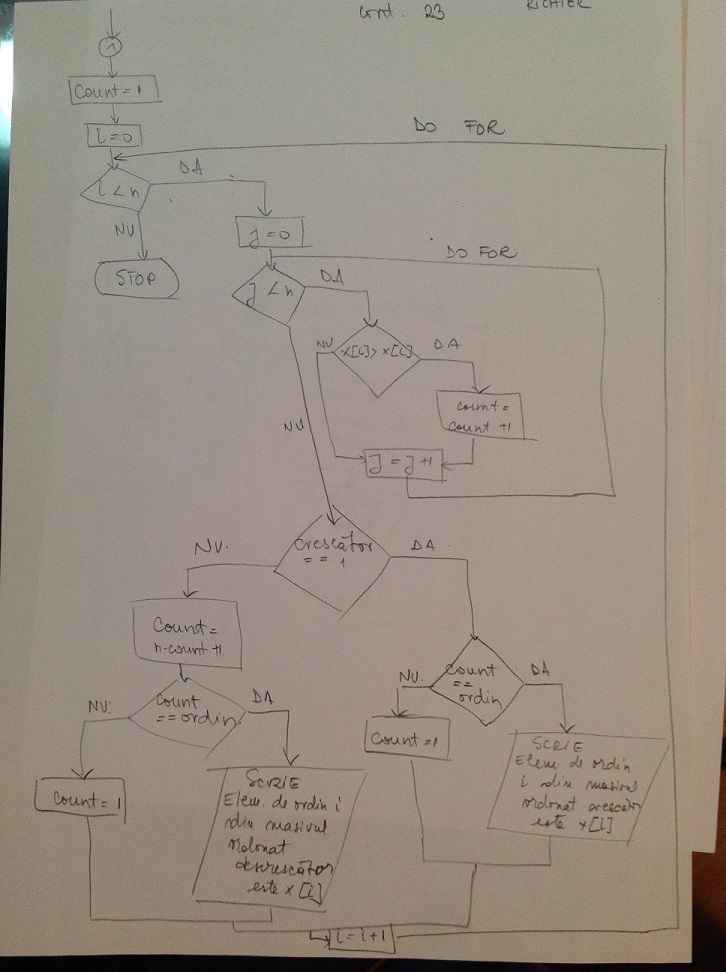 Cont. 23
RICHTER
1
Count = 1
i=0
DO FOR
i < n
DA
NU
STOP
J=0
DO FOR
J < n
DA
NU
x[i]> x[i]
DA
NU
count =
count +1
J = J+1
crescător
== 1
NU.
DA
Count =
n-count +1
Count
== ordin
NU.
DA
Count
== ordin
NU.
DA
Count =1
SCRIE
Elem. de ordin
i din masivul
ordonat crescător
este x[i]
Count = 1
SCRIE
Elem. de ordin i
din masivul
ordonat
descrescător
este x [i]
i = i+1